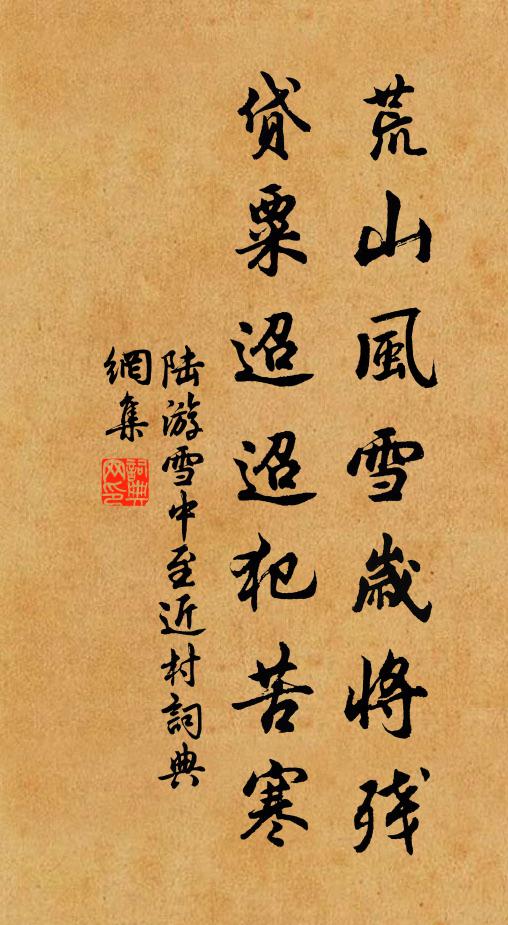 荒山風雪歲將殘
貸粟迢迢犯苦寒
陆游雪中至近村詞典
網集
詞典
网印